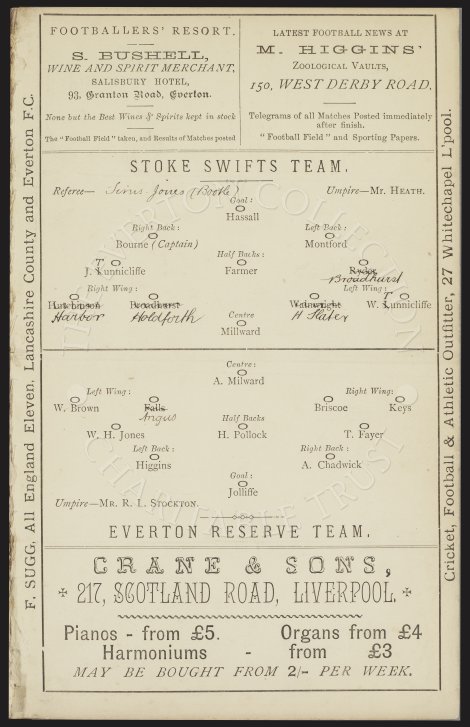 FOOTBALLERS' RESORT.
S. BUSHELL,
WINE AND SPIRIT MERCHANT,
SALISBURY HOTEL,
93, Granton Road, Everton.
None but the Best Wines & Spirits kept in stock
The "Football Field" taken, and Results of Matches posted
LATEST FOOTBALL NEWS AT
M. HIGGINS'
ZOOLOGICAL VAULTS,
150, WEST DERBY ROAD,
Telegrams of all Matches Posted immediately
after finish.
"Football Field" and Sporting Papers.
F. SUGG, All England Eleven, Lancashire County and Everton F.C.
Cricket, Football & Athletic Outfitter, 27 Whitechapel L'pool.
STOKE SWIFTS TEAM.
Referee— Jones (Bootle)
Umpire—MR. HEATH.
Goal:
Hassall
Right Back: Left Back:
Bourne (Captain) Montford
Half Backs
T
J. Lunnicliffe Farmer Ryder
Broadhurst
Right Wing: Left Wing:
T
Hutchinson Broadhurst Wainwright W. Lunnicliffe
Harbor Holdforth H Slater
Centre
Millward
Centre:
A. Milward
Left Wing: Right Wing:
W. Brown Falls Briscoe Keys
Angus
Half Backs
W. H. Jones H. Pollock T. Fayer
Left Back: Right Back:
Higgins A. Chadwick
Goal:
Jolliffe
Umpire—MR. R. L. STOCKTON.
EVERTON RESERVE TEAM.
CRANE & SONS,
217, SCOTLAND ROAD, LIVERPOOL.
Pianos - from £5. Organs from £4
Harmoniums - from £3
MAY BE BOUGHT FROM 2/- PER WEEK.
THE EVERTON COLLECTION
CHARITABLE TRUST